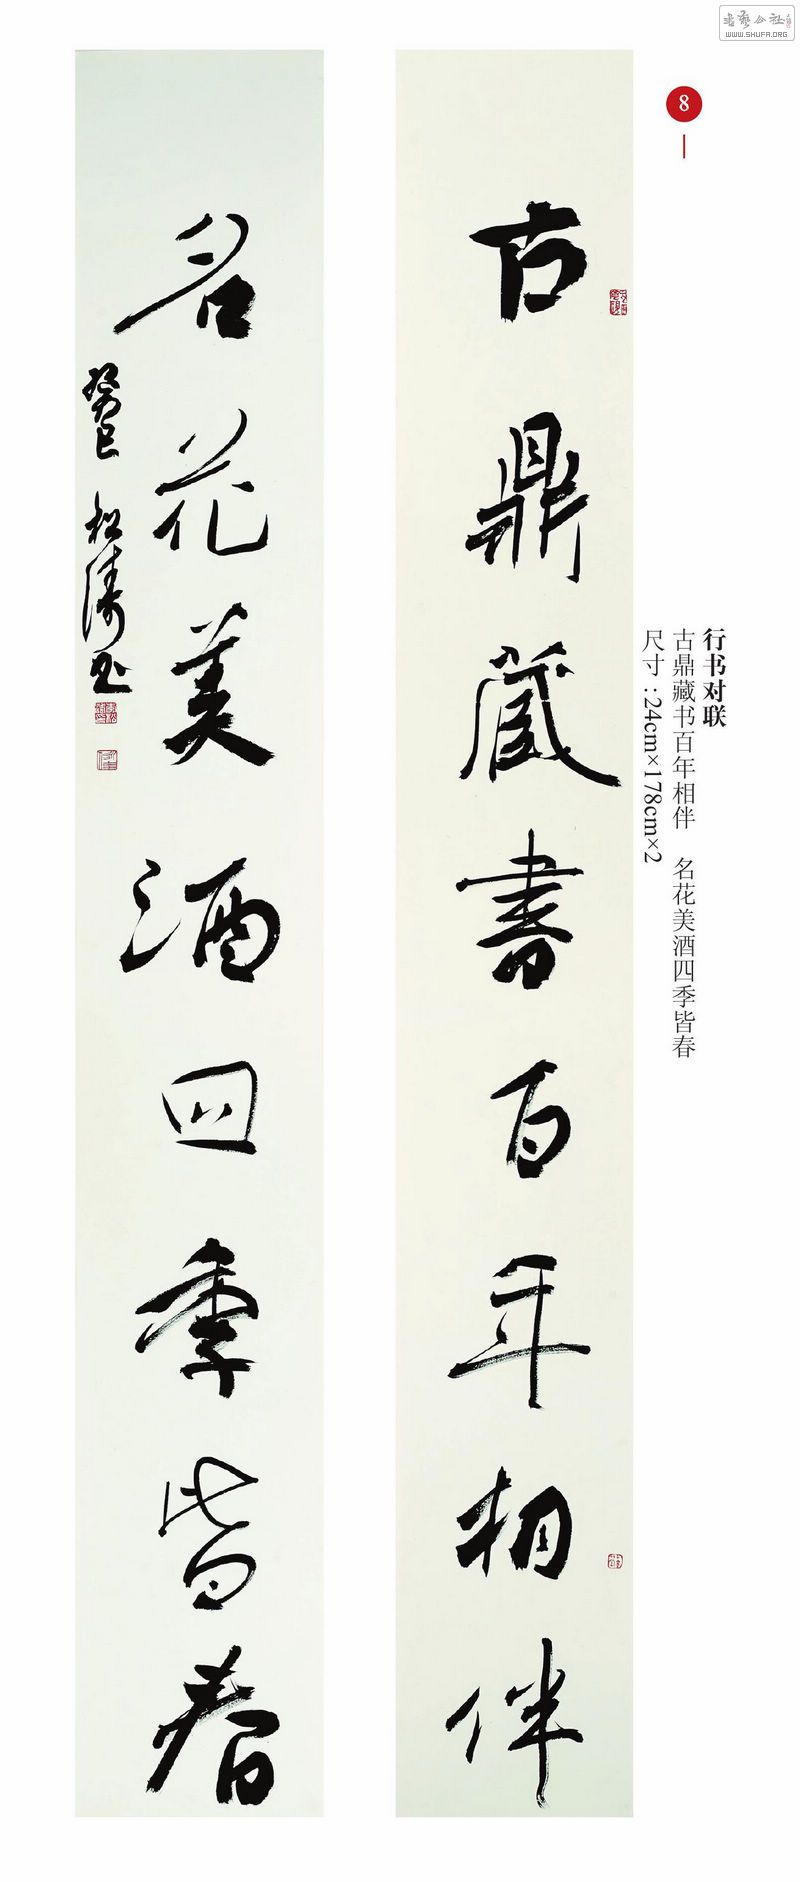 书艺公社
WWW.SHUFA.ORG
8
行书对联
古鼎藏书百年相伴 名花美酒四季皆春
尺寸：24cm×178cm×2
古鼎藏書百年相伴
名花美酒四季皆春
癸巳 松涛书